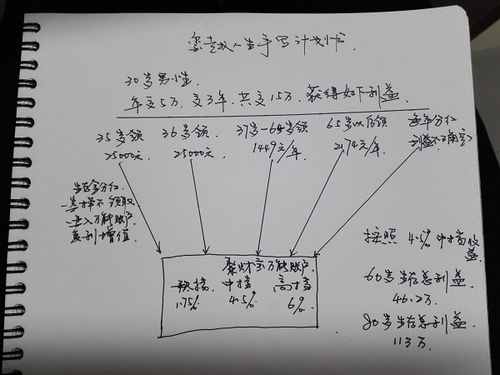 人生手写计划书
30岁男性
年交5万,交3年,共交15万,获得如下利益
35岁领 36岁领 37岁-64岁领 65岁以后领 每年分红
25000元 25000元 1449元/年 2174元/年 (利益不确定)
生存金分红
选择不领取
进入万能账户
复利增值
聚财宝万能账户
中档 高档
1.75% 4.5% 6%
按照 4.5% 中档收益
60岁生存总利益
46.2万
80岁生存总利益
113万